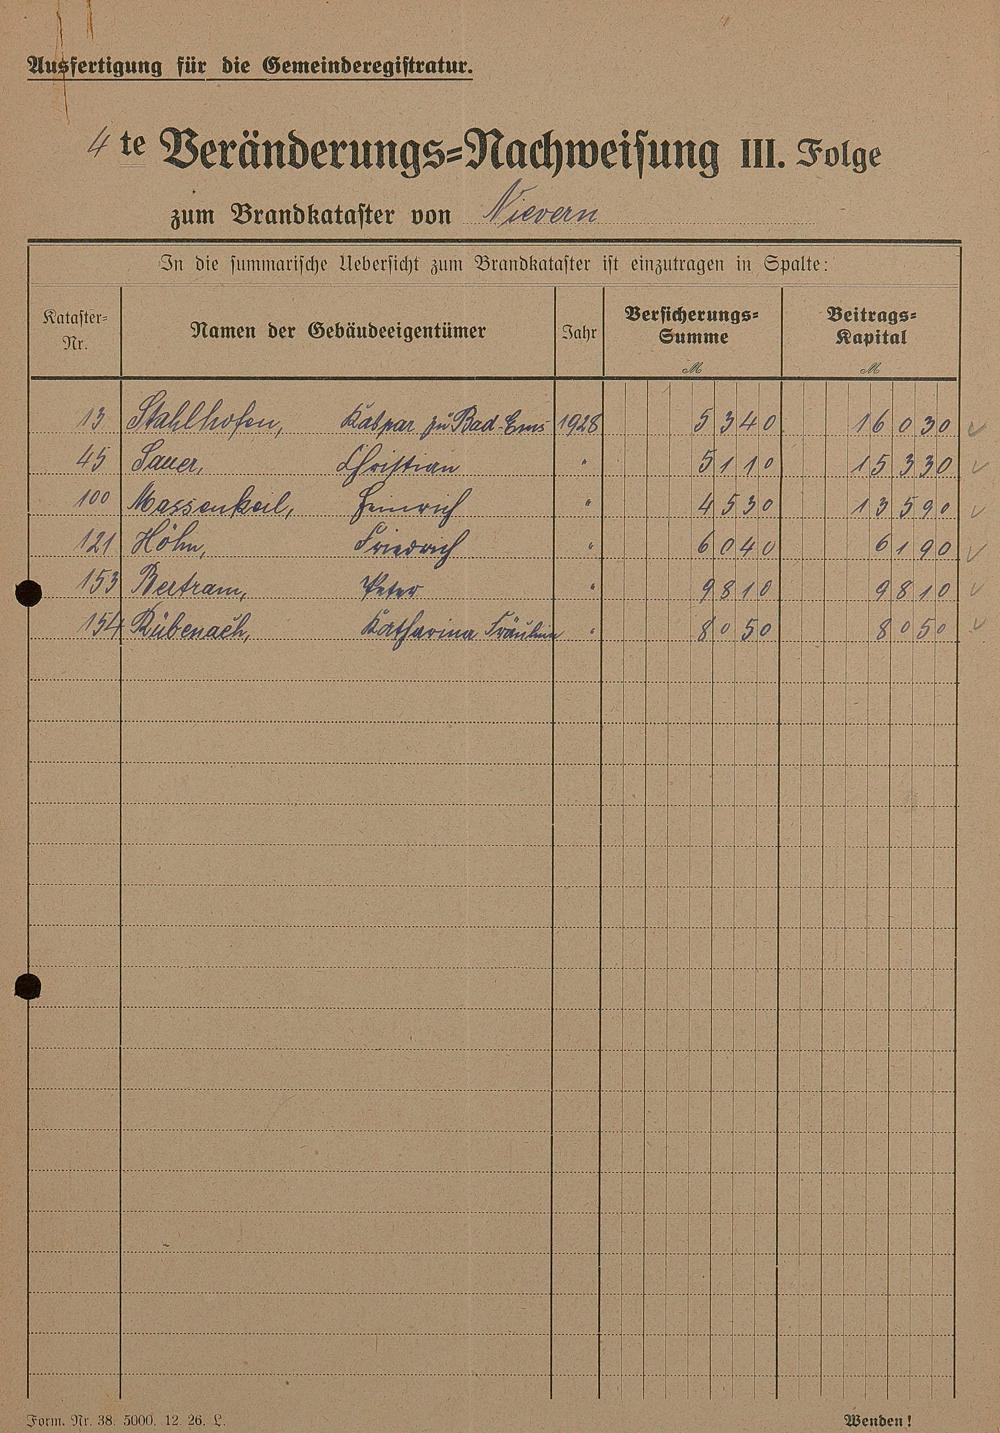 Ausfertigung für die Gemeinderegistratur.
4te Veränderungs-Nachweisung III. Folge
zum Brandkataster von Nievern
In die summarische Uebersicht zum Brandkataster ist einzutragen in Spalte:
Kataster-Nr. Namen der Gebäudeeigentümer Jahr Versicherungs-Summe M Beitrags-Kapital M
13 Stahlhofen, Kaspar zu Bad-Ems 1928 5340 16030 ✓
45 Sauer, Christian " 5110 15330 ✓
100 Massenkeil, Heinrich " 4530 13590 ✓
121 Höhn, Friedrich " 6040 6190 ✓
153 Bertram, Peter " 9810 9810 ✓
154 Rübenach, Katharina Fräulein " 8050 8050 ✓
Form. Nr. 38. 5000. 12. 26. L. Wenden!